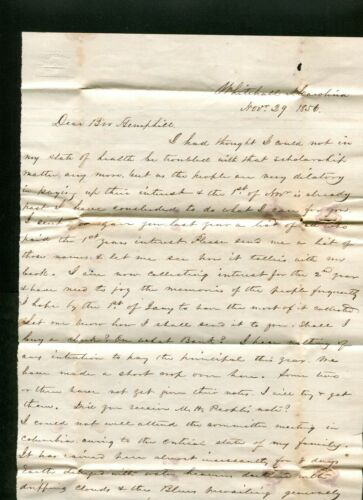 Whitehall S. Carolina
Nov. 29 1856.
Dear Bro Hemphill
I had thought I could not in
my state of health be troubled with that scholarship
matter any more. but as the people are very dilatory
in paying up their interest & the 1st of Nov. is already
past I have concluded to do what I can for you
I sent you again last year a list of all who
paid the 1st years interest Please send me a list of
those names & let me see how it tallies with my
book. I am now collecting interest for the 2nd year
& have need to jog the memories of the people frequently
I hope by the 1st of Jany to have the most of it collected
Let me know how I shall send it to you. Shall I
buy a check? On what Bank? I hear nothing of
any intention to pay the principal this year. We
have made a short crop over here. Some two
or three have not yet given their notes. I will try & get
them. Did you receive M. H. note?
I could not attend the committee meeting in
Columbia owing to the critical state of my family.
It has rained here almost incessantly for days
Earth deluged with water heavens
dropping clouds & the Blues presiding generally